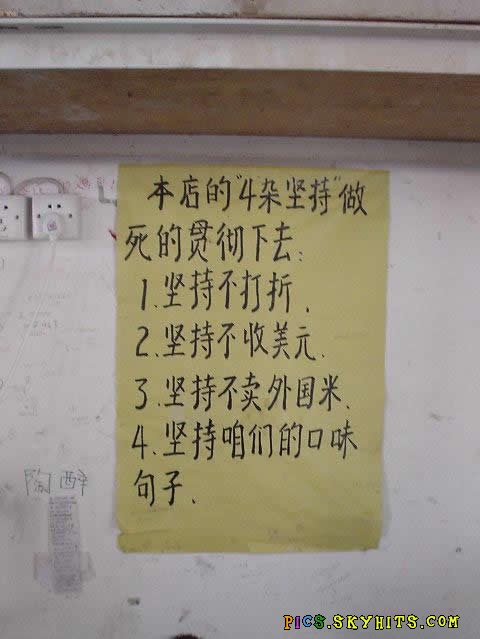 本店的"4杂坚持"做
死的贯彻下去:
1.坚持不打折.
2.坚持不收美元.
3.坚持不卖外国米.
4.坚持咱们的口味
句子.
陶醉
PICS.SKYHITS.COM